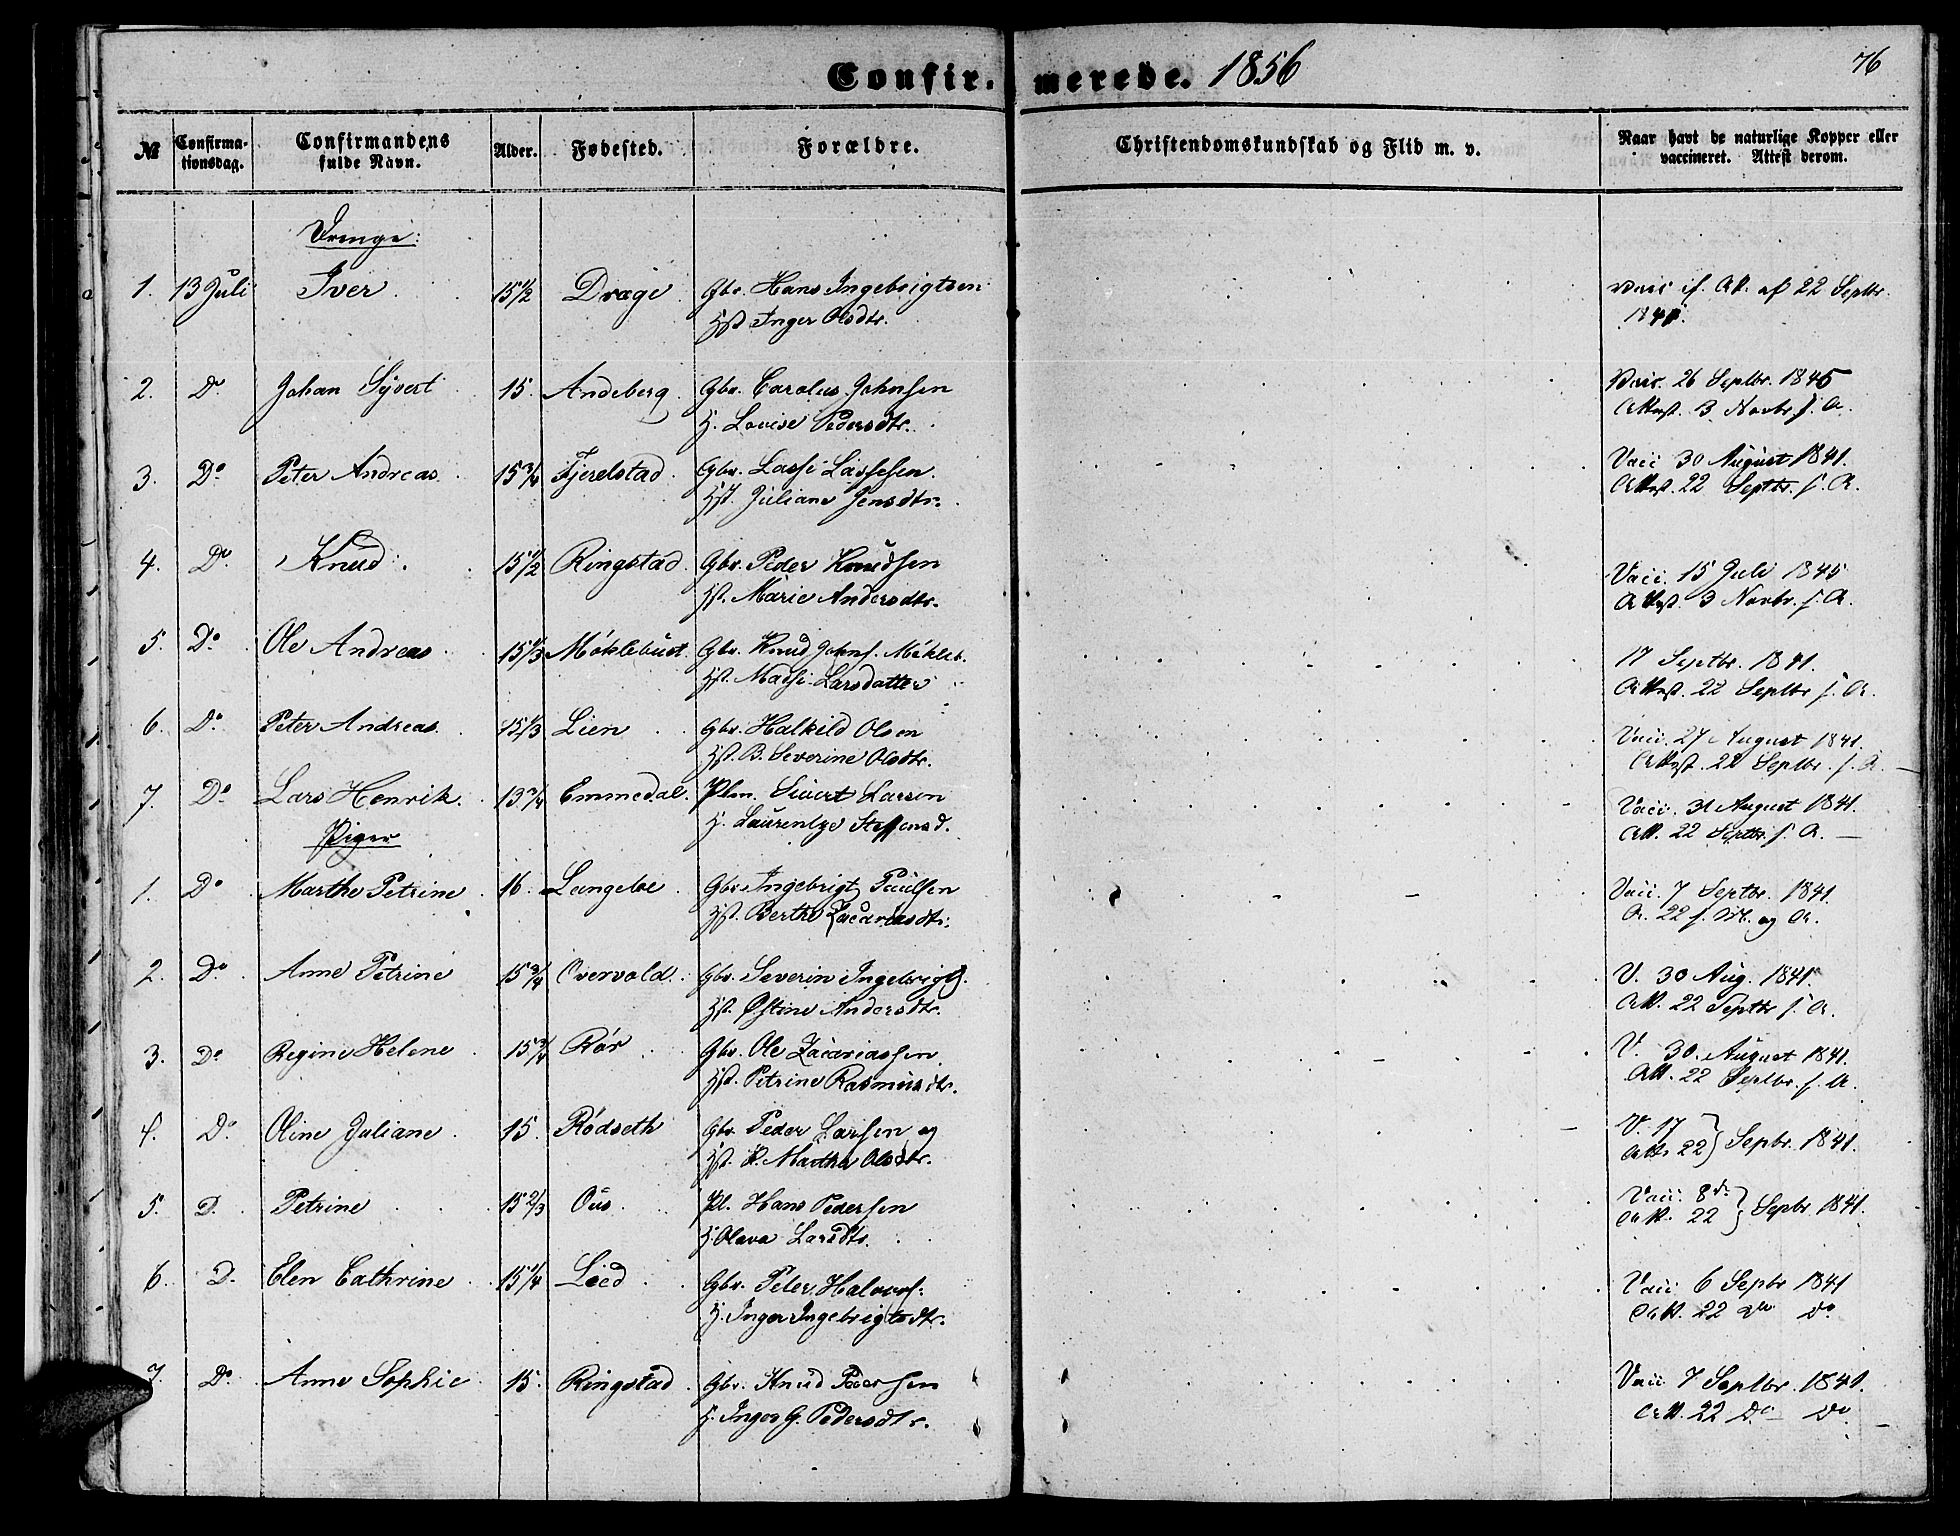 Confirmerede. 1856
76
№ Confirma-tionsdag. Confirmandens fulde Navn. Alder. Fødested. Forældre. Christendomskundskab og Flid m. v. Naar havt de naturlige Kopper eller vaccineret. Attest derom.
Drenge:
1. 13 Juli Iver 15 1/2 Drage Gbr. Hans Ingebrigtsen Vacc if. Att. af 22 Septbr.
Hst Inger Olsdtr. 1841.
2. Do Johan Syvert 15. Andeberg Gbr. Carolus Johnsen Vacc. 26 Septbr. 1845
H. Lovise Pedersdtr. Attest. 3 Novbr. s. A.
3. Do Peter Andreas 15 3/4 Fjerelstad Gbr. Lasse Lassesen Vacc 30 August 1841.
Hst. Juliane Jensdtr. Attest. 22 Septbr. s. A.
4. Do Knud 15 1/2 Ringstad Gbr. Peder Knudsen Vacc. 15 Juli 1845
Hst. Marie Andersdtr. Attest. 3 Novbr. s. A.
5. Do Ole Andreas 15 1/3 Möklebust Gbr. Knud Johns. Mökleb. 17 Septbr. 1841.
Hst. Massi Larsdatter Attest. 22 Septbr s. A.
6. Do Peter Andreas 15 1/3 Lien Gbr. Halkild Olsen Vacc. 27 August 1841.
Hst. B. Severine Olsdtr. Attest. 22 Septbr. s. A.
7. Do Lars Henrik 13 3/4 Emmedal Plm. Sivert Larsen Vacc. 31 August 1841.
H. Laurentze Steffensd. Att. 22 Septbr s. A.
Piger
1. Do Marthe Petrine 16. Langeloe Gbr Ingebrigt Paulsen Vacc. 7 Septbr. 1841.
Hst. Berthe Zacariasdtr. A. 22 s. M. og A.
2. Do Anne Petrine 15 3/4 Overvold Gbr. Severin Ingebrigts. V. 30 Aug. 1841.
Hst. Østine Andersdtr. Att. 22 Septbr s. A.
3. Do Regine Helene 15 3/4 Rör Gbr. Ole Zacariassen V. 30. August 1841.
Hst. Petrine Rasmusdtr. Att. 22 Septbr. s. A.
4. Do Oline Juliane 15. Rödseth Gbr. Peder Larsen og V. 17
Hst. P. Marthe Olsdtr. Att. 22 Sepbr. 1841.
5. D. Petrine 15 2/3 Ous Pl. Hans Pedersen Vacc. 8de
H. Olava Larsdtr. Att. 22 Sepbr 1841.
6. D. Elen Cathrine 15 1/4 Lied Gbr. Peter Halvors. Vacc 6 Sepbr 1841
H. Inger Ingebrigtsdtr. Att. 22 Do Do
7. Do Anne Sophie 15. Ringstad Gbr. Knud Pedersen Vacc 7 Septbr. 1841.
H. Inger G. Pedersdtr. Att. 22 Do Do